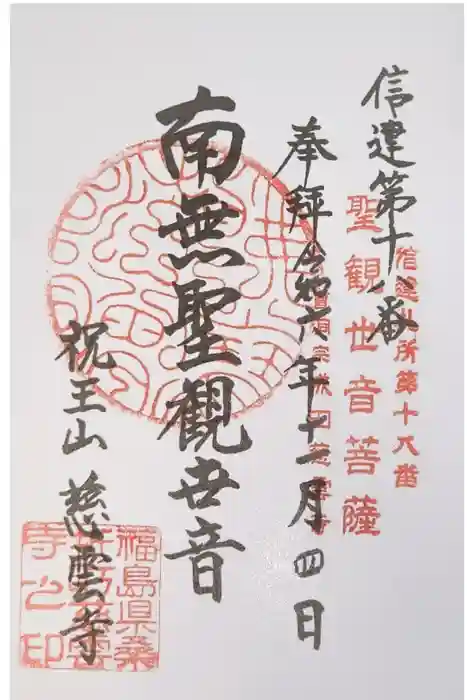 信達第十八番
奉拝 令和六年十二月四日
南無聖觀世音
祝王山 慈雲寺
信達札所第十八番
聖観世音菩薩
福島県桑
寺之印